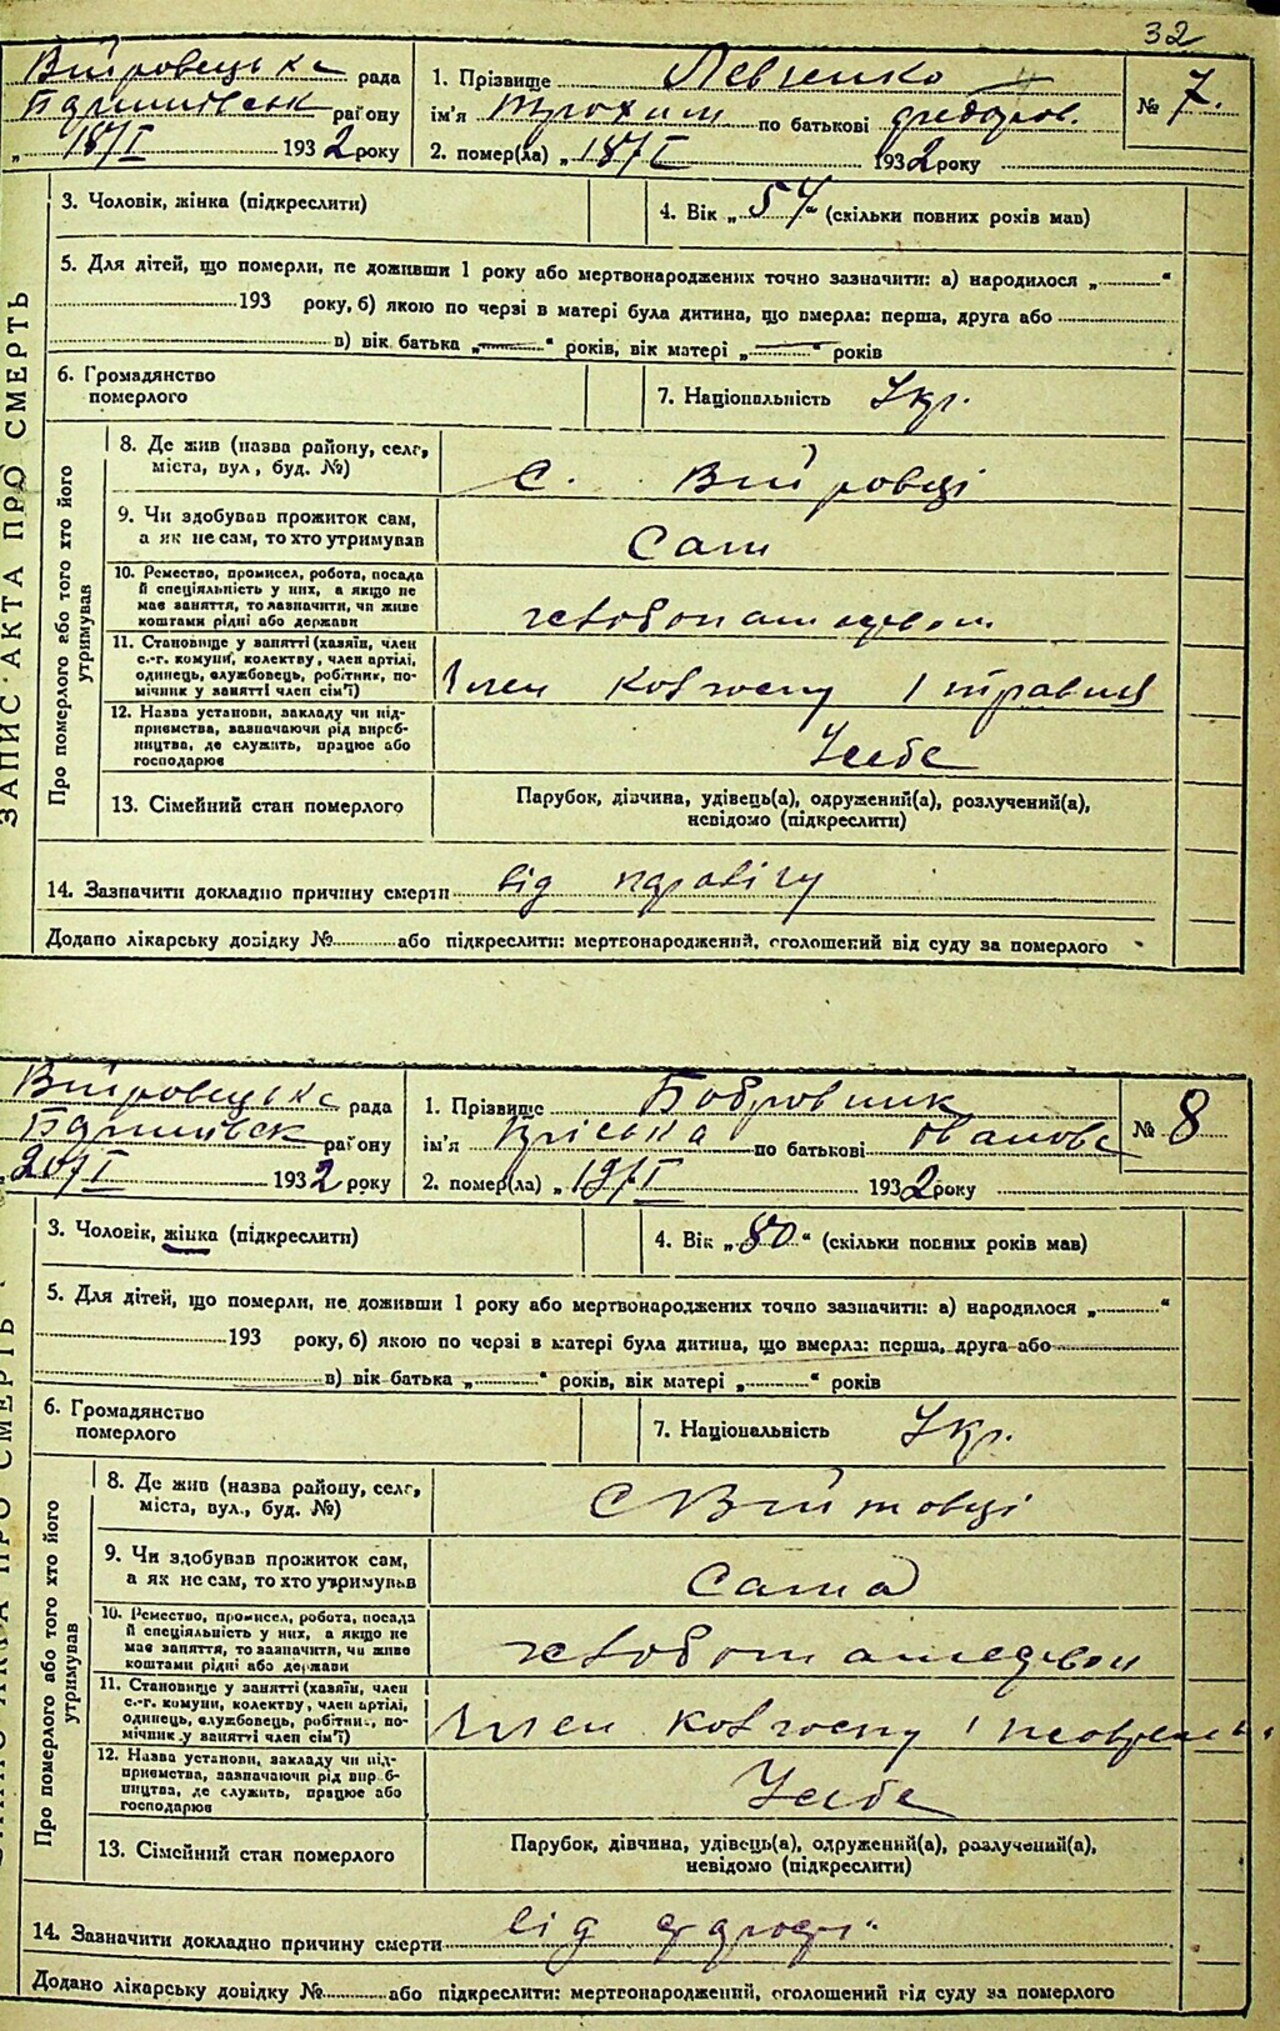 32
рада
району
18/I 1932 року
1. Прізвище Левченко
ім'я Трохим по батькові Федоров.
2. помер(ла) „18/I 1932 року
№ 7.
ЗАПИС АКТА ПРО СМЕРТЬ
3. Чоловік, жінка (підкреслити)
4. Вік „ 57 “ (скільки повних років мав)
5. Для дітей, що померли, не доживши 1 року або мертвонароджених точно зазначити: а) народилося „ “
193 року, б) якою по черзі в матері була дитина, що вмерла: перша, друга або
в) вік батька „ “ років, вік матері „ “ років
6. Громадянство
померлого
7. Національність Укр.
Про померлого або того хто його
утримував
8. Де жив (назва району, села,
міста, вул, буд. №)
с.
9. Чи здобував прожиток сам,
а як не сам, то хто утримував
Сам
10. Ремество, промисел, робота, посада
й спеціяльність у них, а якщо не
має заняття, то зазначити, чи живе
коштами рідні або держави
11. Становище у занятті (хазяїн, член
с.-г. комуни, колектву, член артілі,
одинець, службовець, робітник, по-
мічник у занятті член сім'ї)
Член
12. Назва установи, закладу чи під-
приємства, зазначаючи рід вироб-
ництва, де служить, працює або
господарює
У себе
13. Сімейний стан померлого
Парубок, дівчина, удівець(а), одружений(а), розлучений(а),
невідомо (підкреслити)
14. Зазначити докладно причину смерти від
Додано лікарську довідку № або підкреслити: мертвонароджений, оголошений від суду за померлого
рада
району
20/I 1932 року
1. Прізвище Бобровник
ім'я Пріська по батькові Іванова
2. помер(ла) „ 19/I 1932 року
№ 8
3. Чоловік, жінка (підкреслити)
4. Вік „ 80 “ (скільки повних років мав)
5. Для дітей, що померли, не доживши 1 року або мертвонароджених точно зазначити: а) народилося „ “
193 року, б) якою по черзі в матері була дитина, що вмерла: перша, друга або
в) вік батька „ “ років, вік матері „ “ років
6. Громадянство
померлого
7. Національність Укр.
Про померлого або того хто його
утримував
8. Де жив (назва району, села,
міста, вул., буд. №)
С Війтовці
9. Чи здобував прожиток сам,
а як не сам, то хто утримував
Сама
10. Ремество, промисел, робота, посада
й спеціяльність у них, а якщо не
має заняття, то зазначити, чи живе
коштами рідні або держави
11. Становище у занятті (хазяїн, член
с.-г. комуни, колектву, член артілі,
одинець, службовець, робітник, по-
мічник у занятті член сім'ї)
Член
12. Назва установи, закладу чи під-
приємства, зазначаючи рід вироб-
ництва, де служить, працює або
господарює
У себе
13. Сімейний стан померлого
Парубок, дівчина, удівець(а), одружений(а), розлучений(а),
невідомо (підкреслити)
14. Зазначити докладно причину смерти від
Додано лікарську довідку № або підкреслити: мертвонароджений, оголошений від суду за померлого